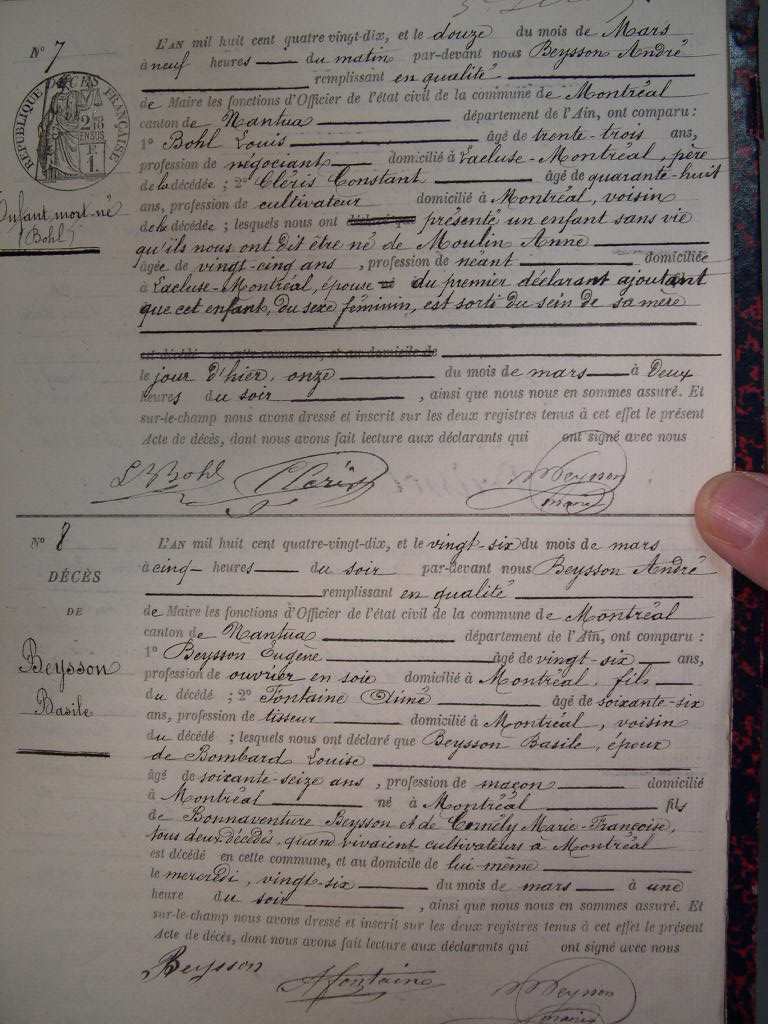 N° 7
L'AN mil huit cent quatre-vingt-dix, et le douze du mois de Mars
à neuf heures du matin par-devant nous Beysson André
remplissant en qualité
de Maire les fonctions d'Officier de l'état civil de la commune de Montréal
canton de Nantua département de l'Ain, ont comparu :
1° Bohl Louis âgé de trente-trois ans,
profession de négociant domicilié à Lacluse-Montréal, père
de la décédée ; 2° Cléris Constant âgé de quarante-huit
ans, profession de cultivateur domicilié à Montréal, voisin
de la décédée ; lesquels nous ont présenté un enfant sans vie
qu'ils nous ont dit être né de Moulin Anne
âgée de vingt-cinq ans, profession de néant domiciliée
à Lacluse-Montréal, épouse du premier déclarant ajoutant
que cet enfant, du sexe féminin, est sorti du sein de sa mère
est décédé en cette commune, et au domicile de
le jour d'hier, onze du mois de mars à deux
heures du soir, ainsi que nous nous en sommes assuré. Et
sur-le-champ nous avons dressé et inscrit sur les deux registres tenus à cet effet le présent
Acte de décès, dont nous avons fait lecture aux déclarants qui ont signé avec nous
RÉPUBLIQUE FRANÇAISE
DÉCÈS
Enfant mort-né
Bohl
L Bohl Cléris Beysson
maire
N° 8
DÉCÈS
DE
Beysson
Basile
L'AN mil huit cent quatre-vingt-dix, et le vingt-six du mois de mars
à cinq heures du soir par-devant nous Beysson André
remplissant en qualité
de Maire les fonctions d'Officier de l'état civil de la commune de Montréal
canton de Nantua département de l'Ain, ont comparu :
1° Beysson Eugène âgé de vingt-six ans,
profession de ouvrier en soie domicilié à Montréal, fils
du décédé ; 2° Fontaine Aimé âgé de soixante-six
ans, profession de tisseur domicilié à Montréal, voisin
du décédé ; lesquels nous ont déclaré que Beysson Basile, époux
de Bombard Louise
âgé de soixante-seize ans, profession de maçon domicilié
à Montréal né à Montréal fils
de Bonnaventure Beysson et de Cornély Marie-Françoise,
tous deux décédés, quand vivaient cultivateurs à Montréal
est décédé en cette commune, et au domicile de lui-même
le mercredi, vingt-six du mois de mars à une
heure du soir, ainsi que nous nous en sommes assuré. Et
sur-le-champ nous avons dressé et inscrit sur les deux registres tenus à cet effet le présent
Acte de décès, dont nous avons fait lecture aux déclarants qui ont signé avec nous
Beysson A Fontaine Beysson
maire